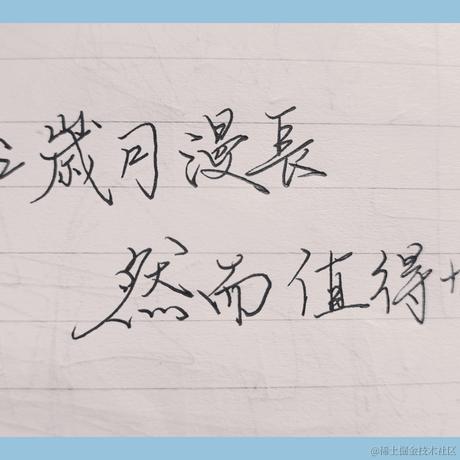 歲月漫長
然而值得
@稀土掘金技术社区